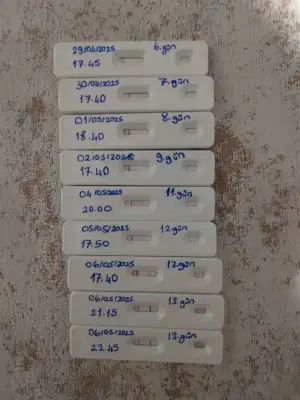 29/04/2025 6.gün
17.45
30/04/2025 7.gün
17.40
01/05/2025 8.gün
18.40
02/05/2025 9.gün
17.40
04/05/2025 11.gün
20.00
05/05/2025 12.gün
17.50
06/05/2025 12.gün
17.40
06/05/2025 13.gün
21.15
06/05/2025 13.gün
22.45